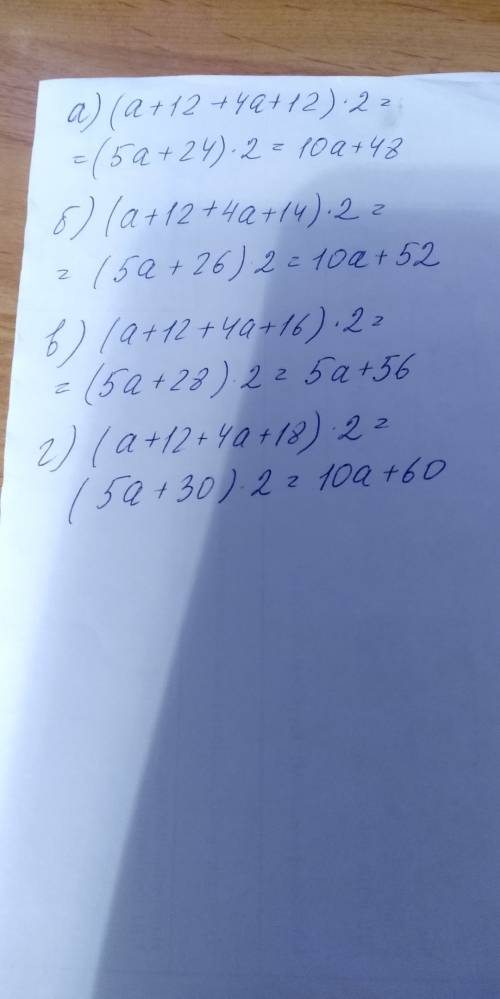 а) (a+12+4a+12)·2=
=(5a+24)·2=10a+48
б) (a+12+4a+14)·2=
= (5a+26)·2=10a+52
в) (a+12+4a+16)·2=
=(5a+28)·2=5a+56
г) (a+12+4a+18)·2=
(5a+30)·2=10a+60